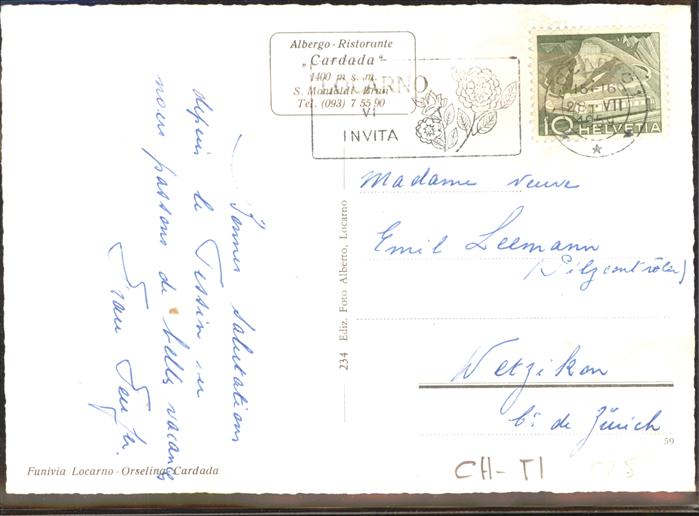 Albergo - Ristorante
„Cardada“
1400 m s. m.
Tel. (093) 7 55 90
LOCARNO
VI
INVITA
10 HELVETIA
Bonnes salutations
depuis le Tessin où
nous passons de belles vacances
Madame veuve
Emil Leemann
(Pilzcontrôle)
Wetzikon
ct. de Zürich
234 Ediz. Foto Alberto, Locarno
59
Funivia Locarno - Orselina-Cardada
CH-TI